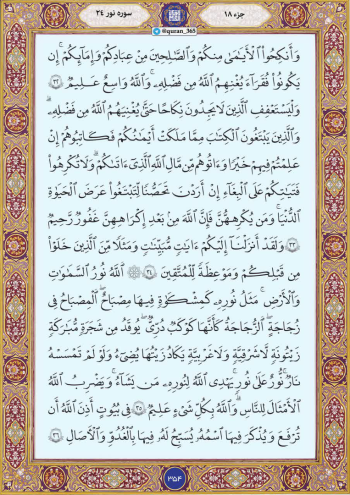 جزء ۱۸
@quran_365
سوره نور ۲۴
وَأَنكِحُوا۟ ٱلْأَيَـٰمَىٰ مِنكُمْ وَٱلصَّـٰلِحِينَ مِنْ عِبَادِكُمْ وَإِمَآئِكُمْ ۚ إِن
يَكُونُوا۟ فُقَرَآءَ يُغْنِهِمُ ٱللَّهُ مِن فَضْلِهِۦ ۗ وَٱللَّهُ وَٰسِعٌ عَلِيمٌ ﴿٣٢﴾
وَلْيَسْتَعْفِفِ ٱلَّذِينَ لَا يَجِدُونَ نِكَاحًا حَتَّىٰ يُغْنِيَهُمُ ٱللَّهُ مِن فَضْلِهِۦ ۗ
وَٱلَّذِينَ يَبْتَغُونَ ٱلْكِتَـٰبَ مِمَّا مَلَكَتْ أَيْمَـٰنُكُمْ فَكَاتِبُوهُمْ إِنْ
عَلِمْتُمْ فِيهِمْ خَيْرًا ۖ وَءَاتُوهُم مِّن مَّالِ ٱللَّهِ ٱلَّذِىٓ ءَاتَىٰكُمْ ۚ وَلَا تُكْرِهُوا۟
فَتَيَـٰتِكُمْ عَلَى ٱلْبِغَآءِ إِنْ أَرَدْنَ تَحَصُّنًا لِّتَبْتَغُوا۟ عَرَضَ ٱلْحَيَوٰةِ
ٱلدُّنْيَا ۚ وَمَن يُكْرِههُّنَّ فَإِنَّ ٱللَّهَ مِنۢ بَعْدِ إِكْرَٰهِهِنَّ غَفُورٌ رَّحِيمٌ
﴿٣٣﴾ وَلَقَدْ أَنزَلْنَآ إِلَيْكُمْ ءَايَـٰتٍ مُّبَيِّنَـٰتٍ وَمَثَلًا مِّنَ ٱلَّذِينَ خَلَوْا۟
مِن قَبْلِكُمْ وَمَوْعِظَةً لِّلْمُتَّقِينَ ﴿٣٤﴾ ۞ ٱللَّهُ نُورُ ٱلسَّمَـٰوَٰتِ
وَٱلْأَرْضِ ۚ مَثَلُ نُورِهِۦ كَمِشْكَوٰةٍ فِيهَا مِصْبَاحٌ ۖ ٱلْمِصْبَاحُ فِى
زُجَاجَةٍ ۖ ٱلزُّجَاجَةُ كَأَنَّهَا كَوْكَبٌ دُرِّىٌّ يُوقَدُ مِن شَجَرَةٍ مُّبَـٰرَكَةٍ
زَيْتُونَةٍ لَّا شَرْقِيَّةٍ وَلَا غَرْبِيَّةٍ يَكَادُ زَيْتُهَا يُضِىٓءُ وَلَوْ لَمْ تَمْسَسْهُ
نَارٌ ۚ نُّورٌ عَلَىٰ نُورٍ ۗ يَهْدِى ٱللَّهُ لِنُورِهِۦ مَن يَشَآءُ ۚ وَيَضْرِبُ ٱللَّهُ
ٱلْأَمْثَـٰلَ لِلنَّاسِ ۗ وَٱللَّهُ بِكُلِّ شَىْءٍ عَلِيمٌ ﴿٣٥﴾ فِى بُيُوتٍ أَذِنَ ٱللَّهُ أَن
تُرْفَعَ وَيُذْكَرَ فِيهَا ٱسْمُهُۥ يُسَبِّحُ لَهُۥ فِيهَا بِٱلْغُدُوِّ وَٱلْـَٔاصَالِ ﴿٣٦﴾
۳۵۴